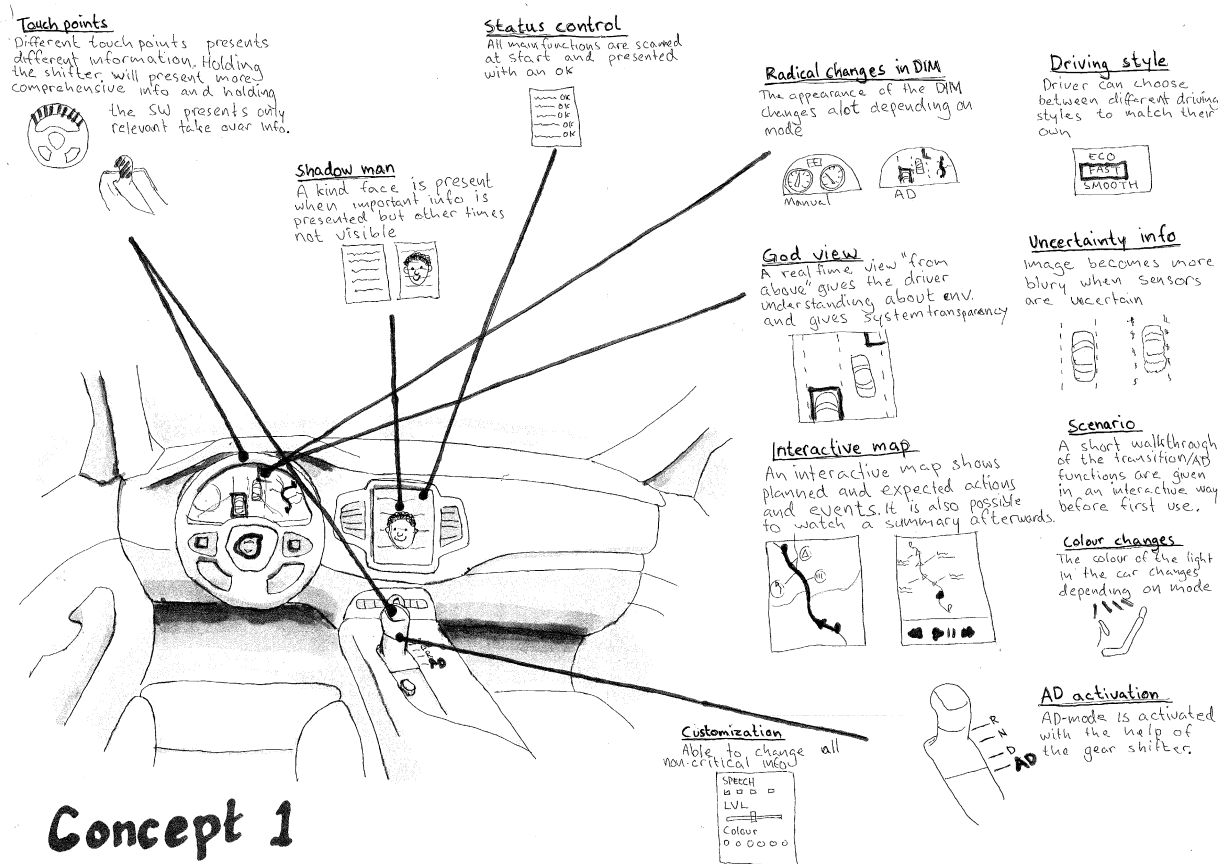 Touch points
Different touch points presents
different information. Holding
the shifter will present more
comprehensive info and holding
the SW presents only
relevant take over info.
Status control
All main functions are scanned
at start and presented
with an OK
OK
OK
OK
OK
OK
Shadow man
A kind face is present
when important info is
presented but other times
not visible
Radical changes in DIM
The appearance of the DIM
changes alot depending on
mode
Manual
AD
Driving style
Driver can choose
between different driving
styles to match their
own
ECO
FAST
SMOOTH
God view
A real time view "from
above" gives the driver
understanding about env.
and gives system transparency
Uncertainty info
Image becomes more
blury when sensors
are uncertain
Interactive map
An interactive map shows
planned and expected actions
and events. It is also possible
to watch a summary afterwards.
Scenario
A short walkthrough
of the transition/AD
functions are given
in an interactive way
before first use.
Colour changes
The colour of the light
in the car changes
depending on mode
AD
AD activation
AD-mode is activated
with the help of
the gear shifter.
R
N
D
AD
Customization
Able to change all
non-critical info
SPEECH
LVL
Colour
Concept 1